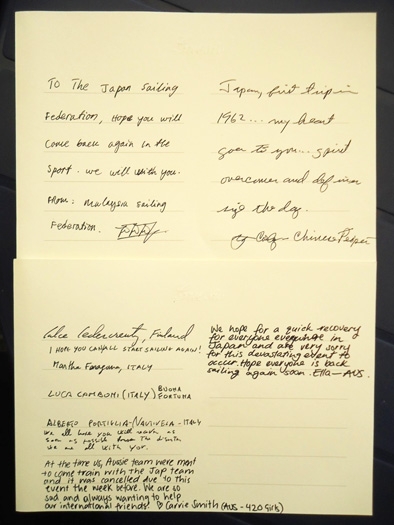 To The Japan Sailing
Federation, Hope you will
Come back again in the
Sport. we will with you.
From: Malaysia Sailing
Federation.
Japan, first trip in
1962... my heart
goes to you... spirit
overcomes and
the day.
Chinese Taipei
Finland
I HOPE YOU CAN ALL START SAILING AGAIN!
Martha Faraguna, ITALY
LUCA (ITALY) BUONA
FORTUNA
ALBERTO - ITALY
we all hope you will
soon as possible from the
we are all with you.
At the time us, Aussie team were meant
to come train with the Jap team
and it was cancelled due to this
event the week before. We are so
sad and always wanting to help
our international friends! ♡ Carrie Smith (AUS - 420 Girls)
We hope for a quick recovery
for everyone everywhere in
Japan and are very sorry
for this devastating event to
occur. Hope everyone is back
sailing again soon. Ella - AUS.